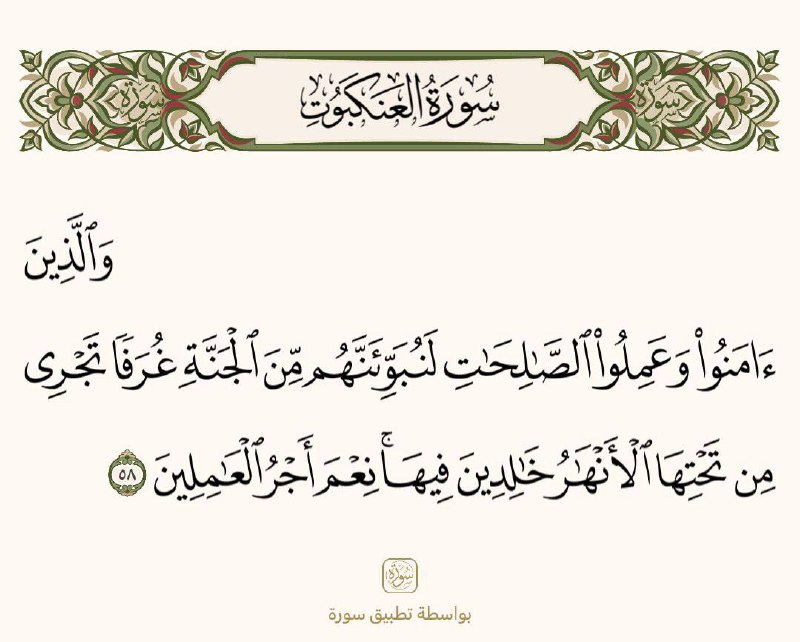 سُورَةُ العَنكَبُوتِ
وَٱلَّذِينَ
ءَامَنُوا۟ وَعَمِلُوا۟ ٱلصَّـٰلِحَـٰتِ لَنُبَوِّئَنَّهُم مِّنَ ٱلْجَنَّةِ غُرَفًا تَجْرِى
مِن تَحْتِهَا ٱلْأَنْهَـٰرُ خَـٰلِدِينَ فِيهَا ۚ نِعْمَ أَجْرُ ٱلْعَـٰمِلِينَ ٥٨
سورة
بواسطة تطبيق سورة